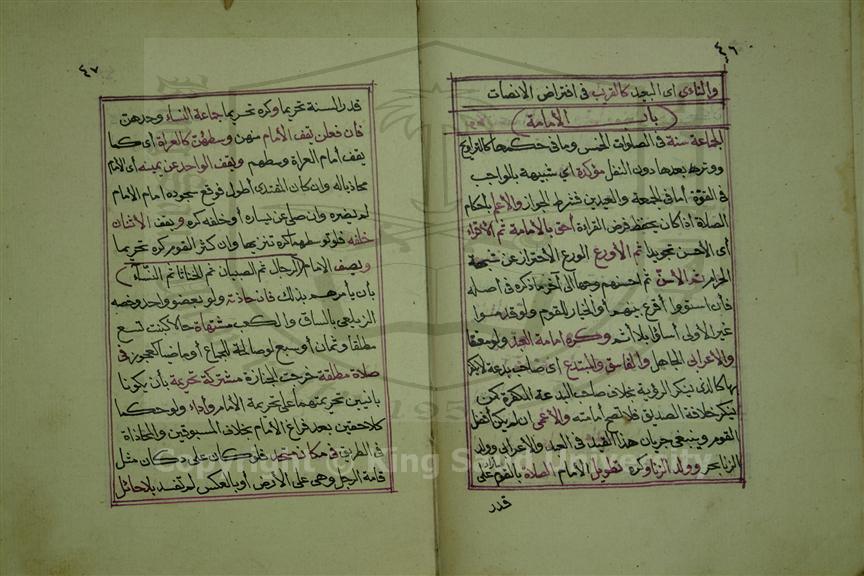 ٤٦
والنائى اى البعيد كالقريب فى افتراض الانصات
باب الامامة
الجماعة سنة فى الصلوات الخمس وما فى حكمها كالتراويح
ووتره بعدها دون النفل مؤكدة اي شبيهة بالواجب
فى القوة اما فى الجمعة والعيدين فشرط الجواز والاعلم باحكام
الصلاة اذا كان يحفظ فرض القراءة احق بالامامة ثم الاقراء
أى الاحسن تجويدا ثم الاورع الورع الاحتراز عن شبهة
الحرام ثم الاسن ثم احسنهم وجها الى آخر ما ذكره فى اصله
فان استووا أقرع بينهم أو الخيار للقوم ولو قدموا
غير الاولى أساؤا بلا أثم وكره امامة العبد ولو معتقا
والاعرابى الجاهل والفاسق والمبتدع اى صاحب بدعة لا يكفر
بها كالذى ينكر الرؤية بخلاف صاحب البدعة المكفرة كمن
ينكر خلافة الصديق فلا تصح امامته والاعمى ان لم يكن أفضل
القوم وينبغى جريان هذا القيد فى العبد والاعرابى وولد
الزنا بحر وولد الزنا وكره تطويل الامام الصلاة بالقوم على
قدر
٤٧
قدر السنة تحريما وكره تحريما جماعة النساء وحدهن
فان فعلن يقف الامام منهن وسطهن كالعراة أى كما
يقف امام العراة وسطهم ويقف الواحد عن يمينه أى الامام
محاذيا له وان كان المقتدى أطول فوقع سجوده امام الامام
لم يضره وان صلى عن يساره أو خلفه كره ويقف الاثنان
خلفه فلو توسطهما كره تنزيها وان كثر القوم كره تحريما
ويصف الامام الرجال ثم الصبيان ثم الخناثا ثم النساء
بأن يأمرهم بذلك فان حاذته ولو بعضو واحد وخصه
الزيلعى بالساق والكعب مشتهاة حالا كبنت تسع
مطلقا وثمان أو سبع لو صالحة للجماع أو ماضيا كعجوز فى
صلاة مطلقة خرجت الجنازة مشتركة تحريمة بأن يكونا
بانيين تحريمتهما على تحريمة الامام وأداء ولو حكما
كلاحقين بعد فراغ الامام بخلاف المسبوقين والمحاذاة
فى الطريق فى مكان متحد فلو كان على دكان مثل
قامة الرجل وهى على الارض أو بالعكس لم تفسد بلا حائل
Copyright © King Saud University